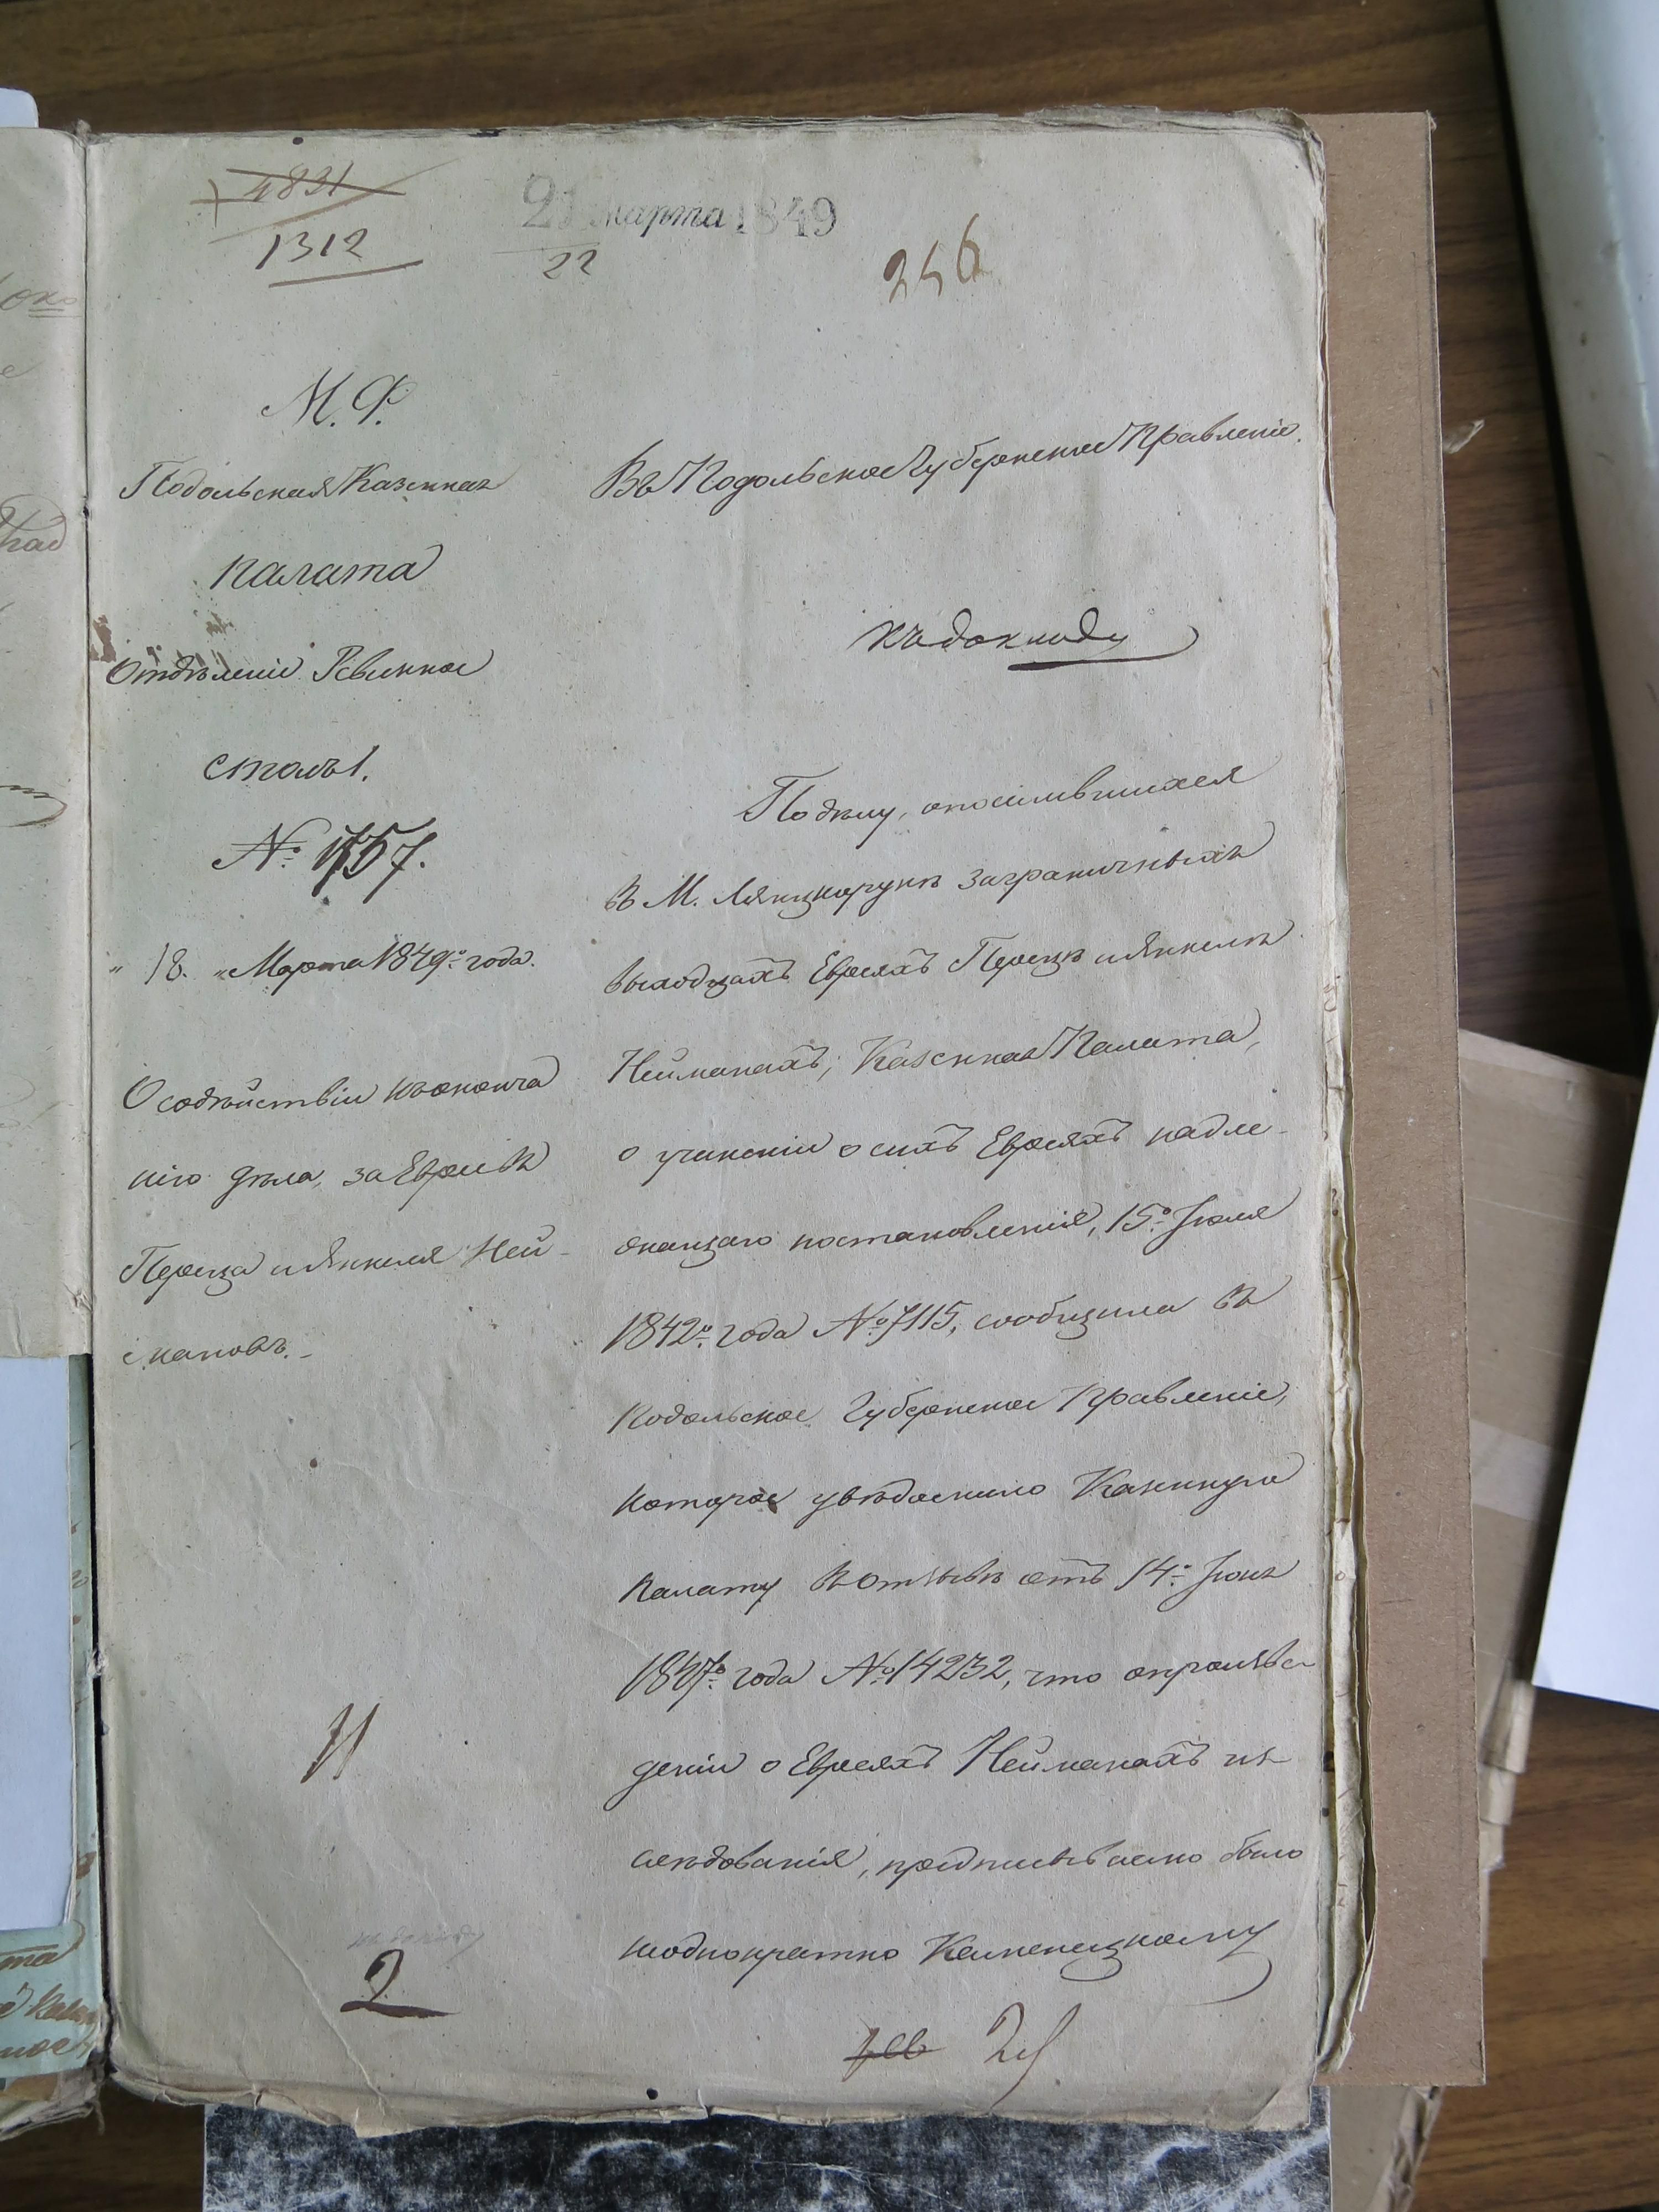 4831
1312
21 Марта 1849
22
246
М. Ф.
Подольская Казенная
Палата
Отдѣленіе Ревизкое
Столъ 1.
№ 1757.
" 18. " Марта 1849.го года.
О содѣйствіи къ оконча
нію дѣла, за Евреевъ
Переца и Янкеля Ней-
мановъ.-
Въ Подольское Губернское Правленіе.
Къ докладу
По дѣлу, о поселившихся
въ М. Лянцкорунѣ заграничныхъ
выходцахъ Евреяхъ Перецѣ и Янкелѣ
Нейманахъ; Казенная Палата,
о учиненіи о сихъ Евреяхъ надле-
жащаго постановленія, 15.го Іюля
1842.го года № 7115, сообщила въ
Подольское Губернское Правленіе,
которое увѣдомило Казенную
Палату въ отзывѣ отъ 14.го Іюня
1847.го года № 14232, что о произве-
деніи о Евреяхъ Нейманахъ из-
слѣдованія, предписываемо было
неоднократно Каменецкому
2